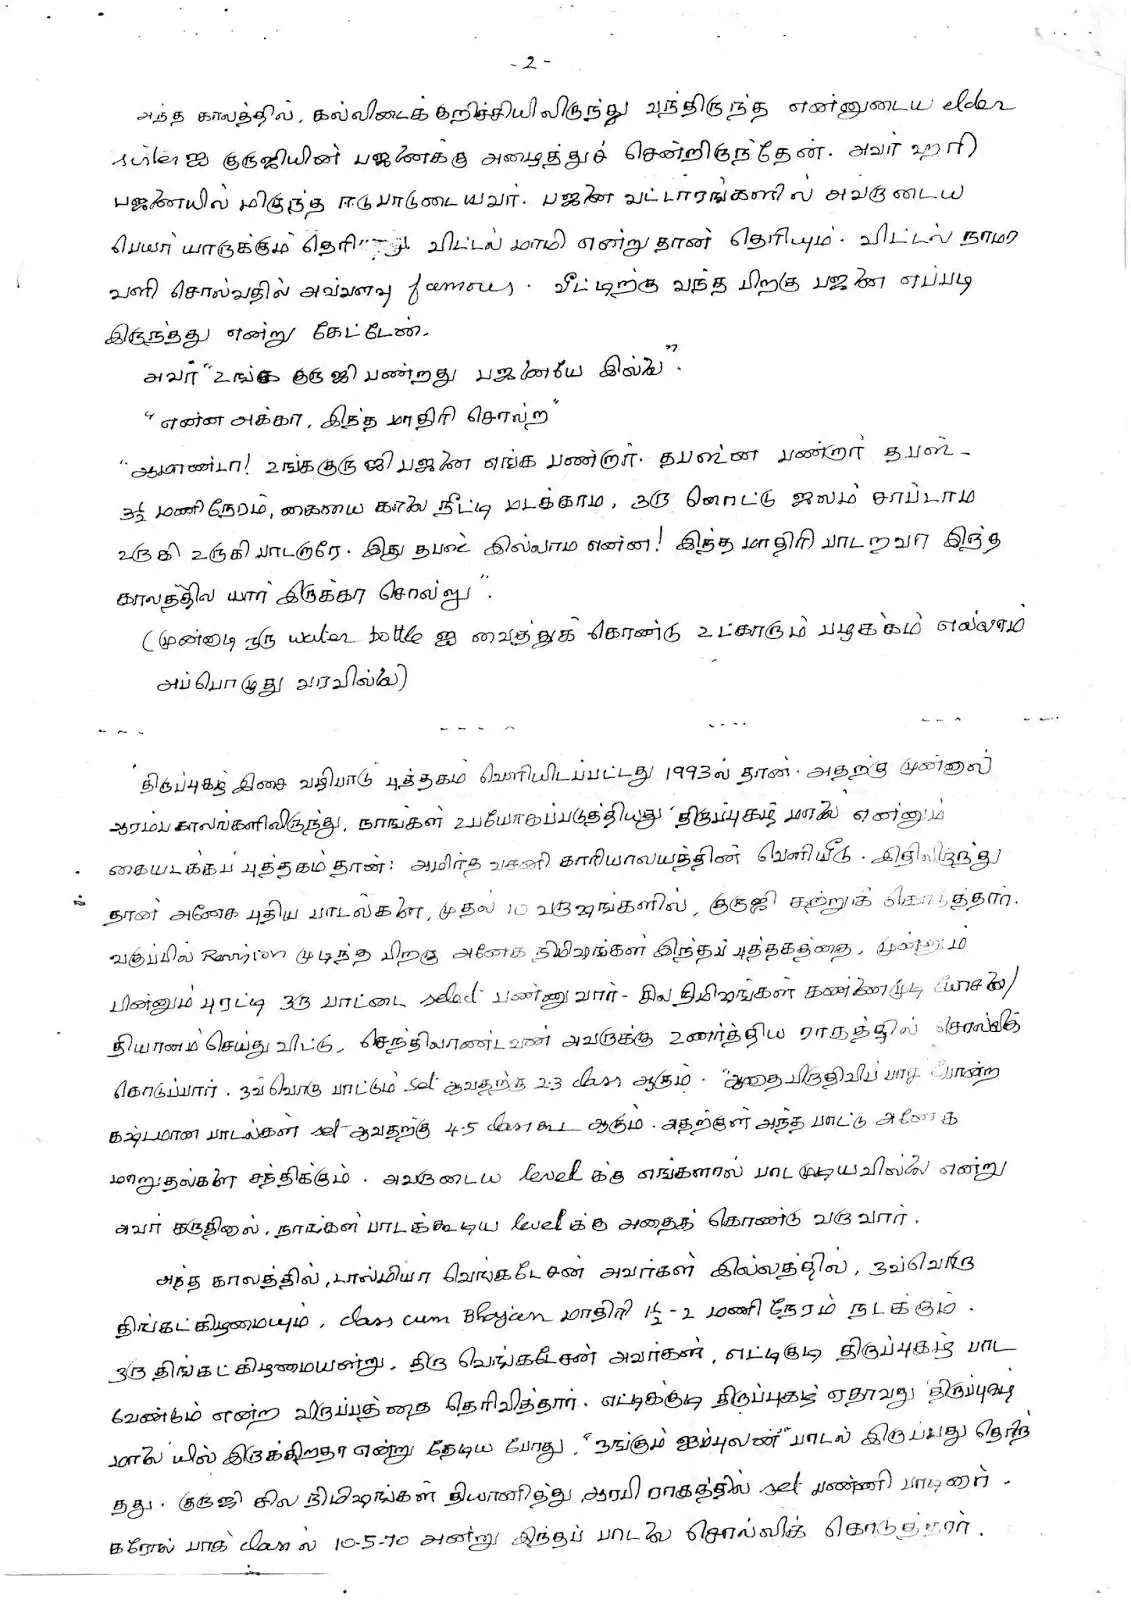 -2-
அந்த காலத்தில், கல்லிடைக் குறிச்சியிலிருந்து வந்திருந்த என்னுடைய elder
sister ஐ குருஜியின் பஜனைக்கு அழைத்துச் சென்றிருந்தேன். அவர் ஹரி
பஜனையில் மிகுந்த ஈடுபாடுடையவர். பஜனை வட்டாரங்களில் அவருடைய
பெயர் யாருக்கும் விட்டல் மாமி என்று தான் தெரியும். விட்டல் நாமா
வளி சொல்வதில் அவ்வளவு famous. வீட்டிற்கு வந்த பிறகு பஜனை எப்படி
இருந்தது என்று கேட்டேன்.
அவர் "உங்க குருஜி பண்றது பஜனையே இல்லை".
"என்ன அக்கா, இந்த மாதிரி சொல்ற"
"ஆமாண்டா! உங்ககுருஜி பஜனை எங்க பண்றார். தபஸ்ன்னா பண்றார் தபஸ் -
3½ மணிநேரம், கையை காலை நீட்டி மடக்காம, ஒரு சொட்டு ஜலம் சாப்டாம
உருகி உருகி பாடறாரே. இது தபஸ் இல்லாம என்ன! இந்த மாதிரி பாடறவா இந்த
காலத்தில யார் இருக்கா சொல்லு".
(முன்னாடி ஒரு water bottle ஐ வைத்துக் கொண்டு உட்காரும் பழக்கம் எல்லாம்
அப்பொழுது வரவில்லை)
'திருப்புகழ் இசை வழிபாடு' புத்தகம் வெளியிடப்பட்டது 1993ல் தான். அதற்கு முன்னால்
ஆரம்ப காலங்களிலிருந்து, நாங்கள் உபயோகப்படுத்தியது 'திருப்புகழ் மாலை' என்னும்
கையடக்கப் புத்தகம் தான்: ஆமிர்த வசனி காரியாலயத்தின் வெளியீடு. இதிலிருந்து
தான் அனேக புதிய பாடல்களை, முதல் 10 வருஷங்களில், குருஜி கற்றுக் கொடுத்தார்.
வகுப்பில் Revision முடிந்த பிறகு அனேக நிமிஷங்கள் இந்தப் புத்தகத்தை, முன்னும்
பின்னும் புரட்டி ஒரு பாட்டை select பண்ணுவார் - சில நிமிஷங்கள் கண்ணைமூடி யோசனை/
தியானம் செய்து விட்டு, செந்திலாண்டவன் அவருக்கு உணர்த்திய ராகத்தில் சொல்லிக்
கொடுப்பார். ஒவ்வொரு பாட்டும் set ஆவதற்கு 2-3 class ஆகும். போன்ற
கஷ்டமான பாடல்கள் set ஆவதற்கு 4-5 class கூட ஆகும். அதற்குள் அந்த பாட்டு அனேக
மாறுதல்களை சந்திக்கும். அவருடைய level க்கு எங்களால் பாட முடியவில்லை என்று
அவர் கருதினால், நாங்கள் பாடக்கூடிய level க்கு அதைக் கொண்டு வருவார்.
அந்த காலத்தில், டால்மியா வெங்கடேசன் அவர்கள் இல்லத்தில், ஒவ்வொரு
திங்கட்கிழமையும், class cum Bhajan மாதிரி 1½ - 2 மணி நேரம் நடக்கும்.
ஒரு திங்கட்கிழமையன்று, திரு வெங்கடேசன் அவர்கள், எட்டிகுடி திருப்புகழ் பாட
வேண்டும் என்ற விருப்பத்தை தெரிவித்தார். எட்டிக்குடி திருப்புகழ் ஏதாவது 'திருப்புகழ்
மாலை'யில் இருக்கிறதா என்று தேடிய போது, "ஓங்கும் ஐம்புலன்" பாடல் இருப்பது தெரிந்
தது. குருஜி சில நிமிஷங்கள் தியானித்து ஆரபி ராகத்தில் set பண்ணி பாடினார்.
கரோல் பாக் class ல் 10-5-70 அன்று இந்தப் பாடலை சொல்லிக் கொடுத்தார்.